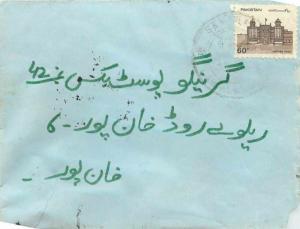 PAKISTAN
60
گرنیگو پوسٹ بکس نمبر 42
ریلوے روڈ خان پور - 6
خان پور -